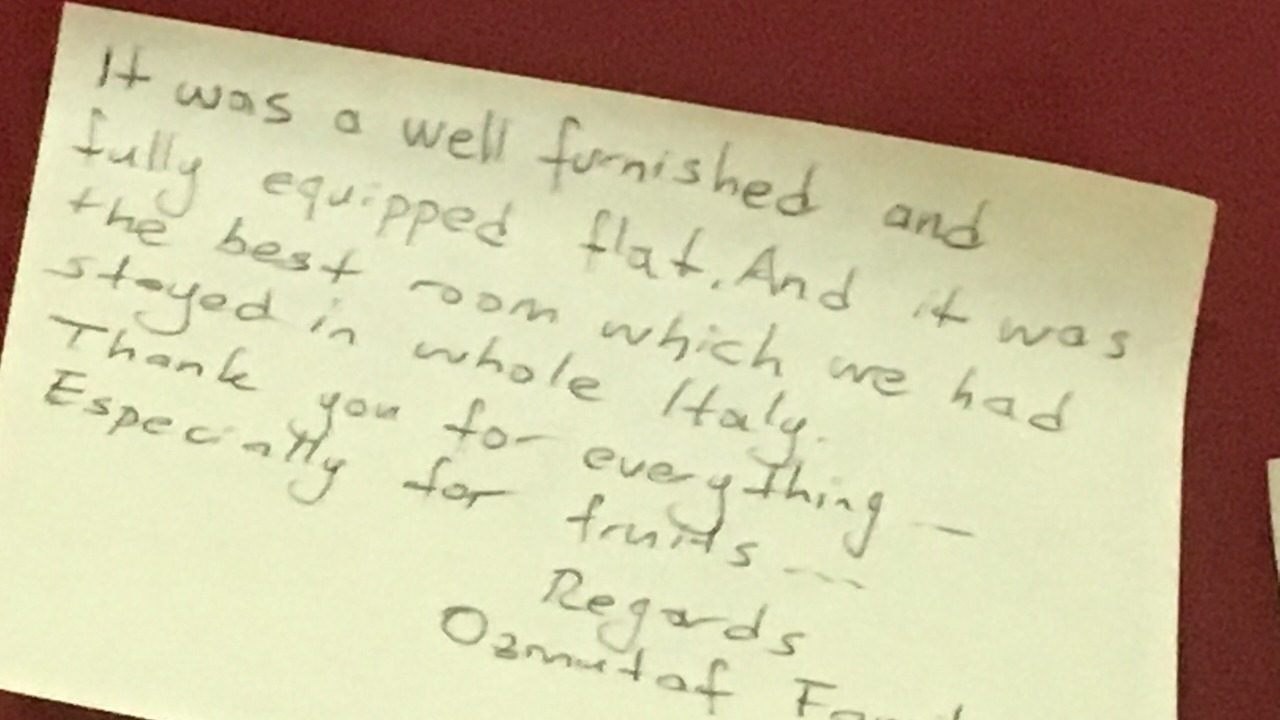 It was a well furnished and
fully equipped flat. And it was
the best room which we had
stayed in whole Italy.
Thank you for everything —
Especially for fruits ---
Regards
Ozmutaf